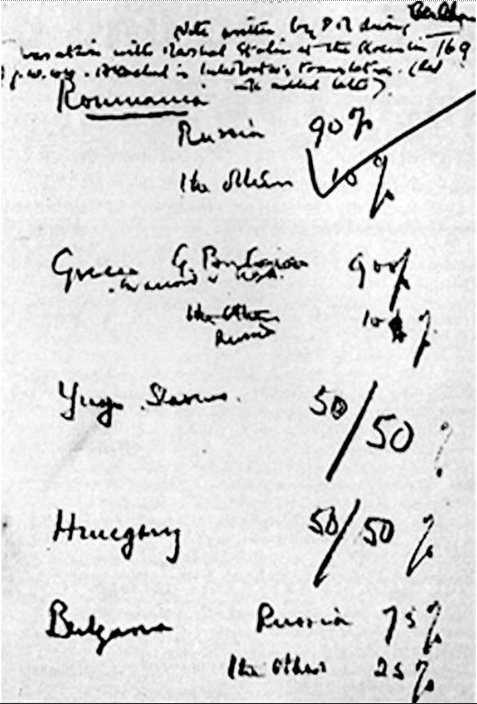 Note written by P.M. during
with Marshal Stalin at the Kremlin 169
Interpreter's translation. (Red
ink added later).
Roumania
Russia 90%
The others 10%
Greece G. Britain 90%
in accord w USA
the Others 10%
Russia
Yugo Slavia 50/50 %
Hungary 50/50 %
Bulgaria Russia 75%
the Others 25%